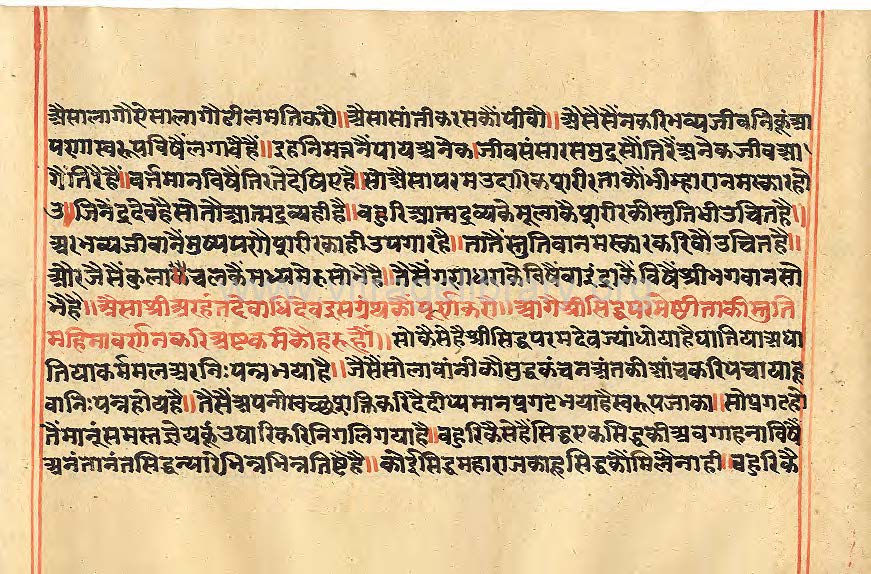 अैसालागौऐसालागौढीलमतिकरौ॥अैसासांतीकरसकौंपीवौ॥अैसैसैंनकरिभव्यजीवनिकूंआ
परणास्वरूपविषैंलगावैहैं॥इहनिमत्तनैंपायअनेकजीवसंसारसमुद्रसौंतिरैंअनेकजीवआ
गैंतिरैहैं॥वर्त्तमानविषैंतिरतेदेषिएहै॥सोअैसापरमउदारिकशरीरताकौंभीम्हारानमस्कारहो
उ॥जिनेंद्रदेवहैसोतौआत्मद्रव्यहीहै॥बहुरिआत्मद्रव्यकेमूलाकैशरीरकीस्तुतिभीउचितहै॥
अरभव्यजीवानैंमुष्यपणैंशरीरकाहीउपगारहै॥तातैंस्तुतिवानमस्कारकरिवौउचितहै॥
औरजैसैंकुलाचलकैमध्यमेरुसोभेहै॥तैसैंगणधराकेविषैंवाइंद्राकैविषैंश्रीभगवानसो
भैहै॥अैसाश्रीअरहंतदेवाधिदेवइसग्रंथकौंपूर्णकरौ॥आगैश्रीसिद्धपरमेष्ठीताकीस्तुति
महिमावर्णनकरिअष्टकर्मकौहरूहौं॥सोकैसेहैश्रीसिद्धपरमदेवज्यांधोयाहैघातियाअघा
तियाकर्ममलअरनिःपन्नभयाहै॥जैसैंसोलावांनीकौसुद्धकंचनअंतकीआंचकरिपचायाहू
वानिःपन्नहोयहै॥तैसैंअपनीस्वच्छशक्तिकरिदैदीप्यमानप्रगटभयाहैस्वरूपजाका॥सोप्रगटहो
तैंमानूंसमस्तज्ञेयकूंउषारिकरिनिगलिगयाहै॥बहुरिकैसेहैंसिद्धएकसिद्धकीअवगाहनाविषैं
अनंतानंतसिद्धन्यारेभिन्नभिन्नतिष्टैहै॥कोईसिद्धमहाराजकाहूसिद्धकौंमिलैनाही॥बहुरिकै